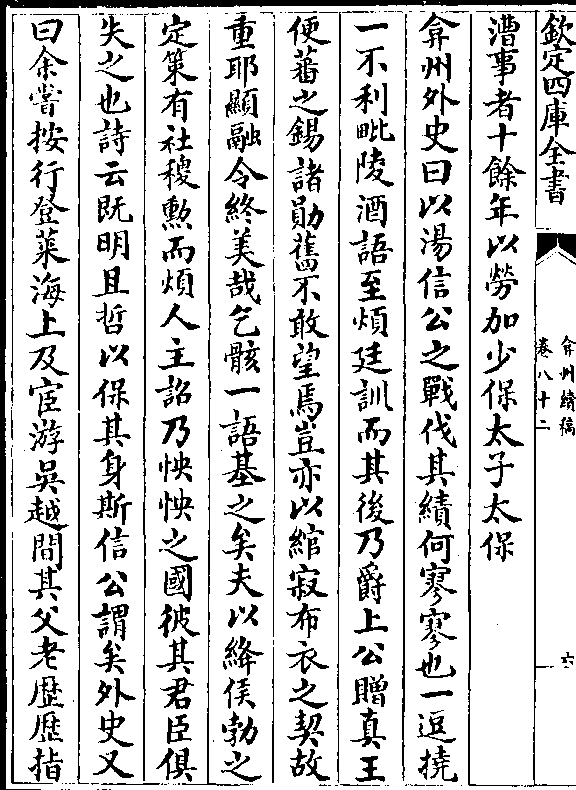 欽定四庫全書
弇州續稿
卷八十二
六
漕事者十餘年以勞加少保太子太保
弇州外史曰以湯信公之戰伐其績何寥寥也一逗撓
一不利毗陵酒語至煩廷訓而其後乃爵上公贈真王
便蕃之錫諸勛舊不敢望焉豈亦以綰寂布衣之契故
重耶顯融令終美哉乞骸一語基之矣夫以絳侯勃之
定策有社稷勲而煩人主詔乃怏怏之國彼其君臣俱
失之也詩云既明且哲以保其身斯信公謂矣外史又
曰余嘗按行登萊海上及宦游吳越間其父老歴歴指